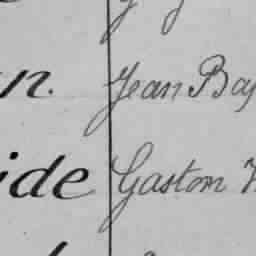 n. Jean Bap
ide Gaston